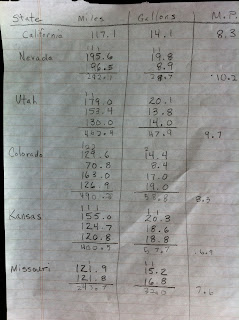 State Miles Gallons M.P.
California 117.1 14.1 8.3
Nevada 195.6 19.8
96.5 8.9
10.2
Utah 179.0 20.1
153.4 13.8
130.0 14.0
47.9 9.7
Colorado 14.4
70.8 8.4
163.0 17.0
126.9 19.0
8.3
Kansas 155.0 20.8
124.7 18.6
120.8 18.8
Missouri 121.9 15.2
121.8 16.8
7.6